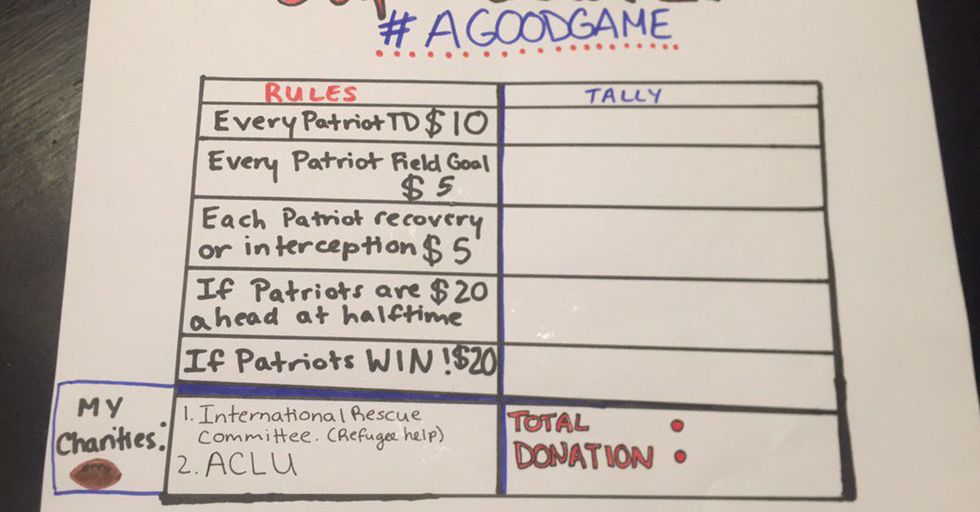 #AGOODGAME
RULES
TALLY
Every Patriot TD $10
Every Patriot Field Goal
$5
Each Patriot recovery
or interception $5
If Patriots are $20
ahead at halftime
If Patriots WIN! $20
MY
Charities:
1. International Rescue
Committee. (Refugee help)
2. ACLU
TOTAL
DONATION :